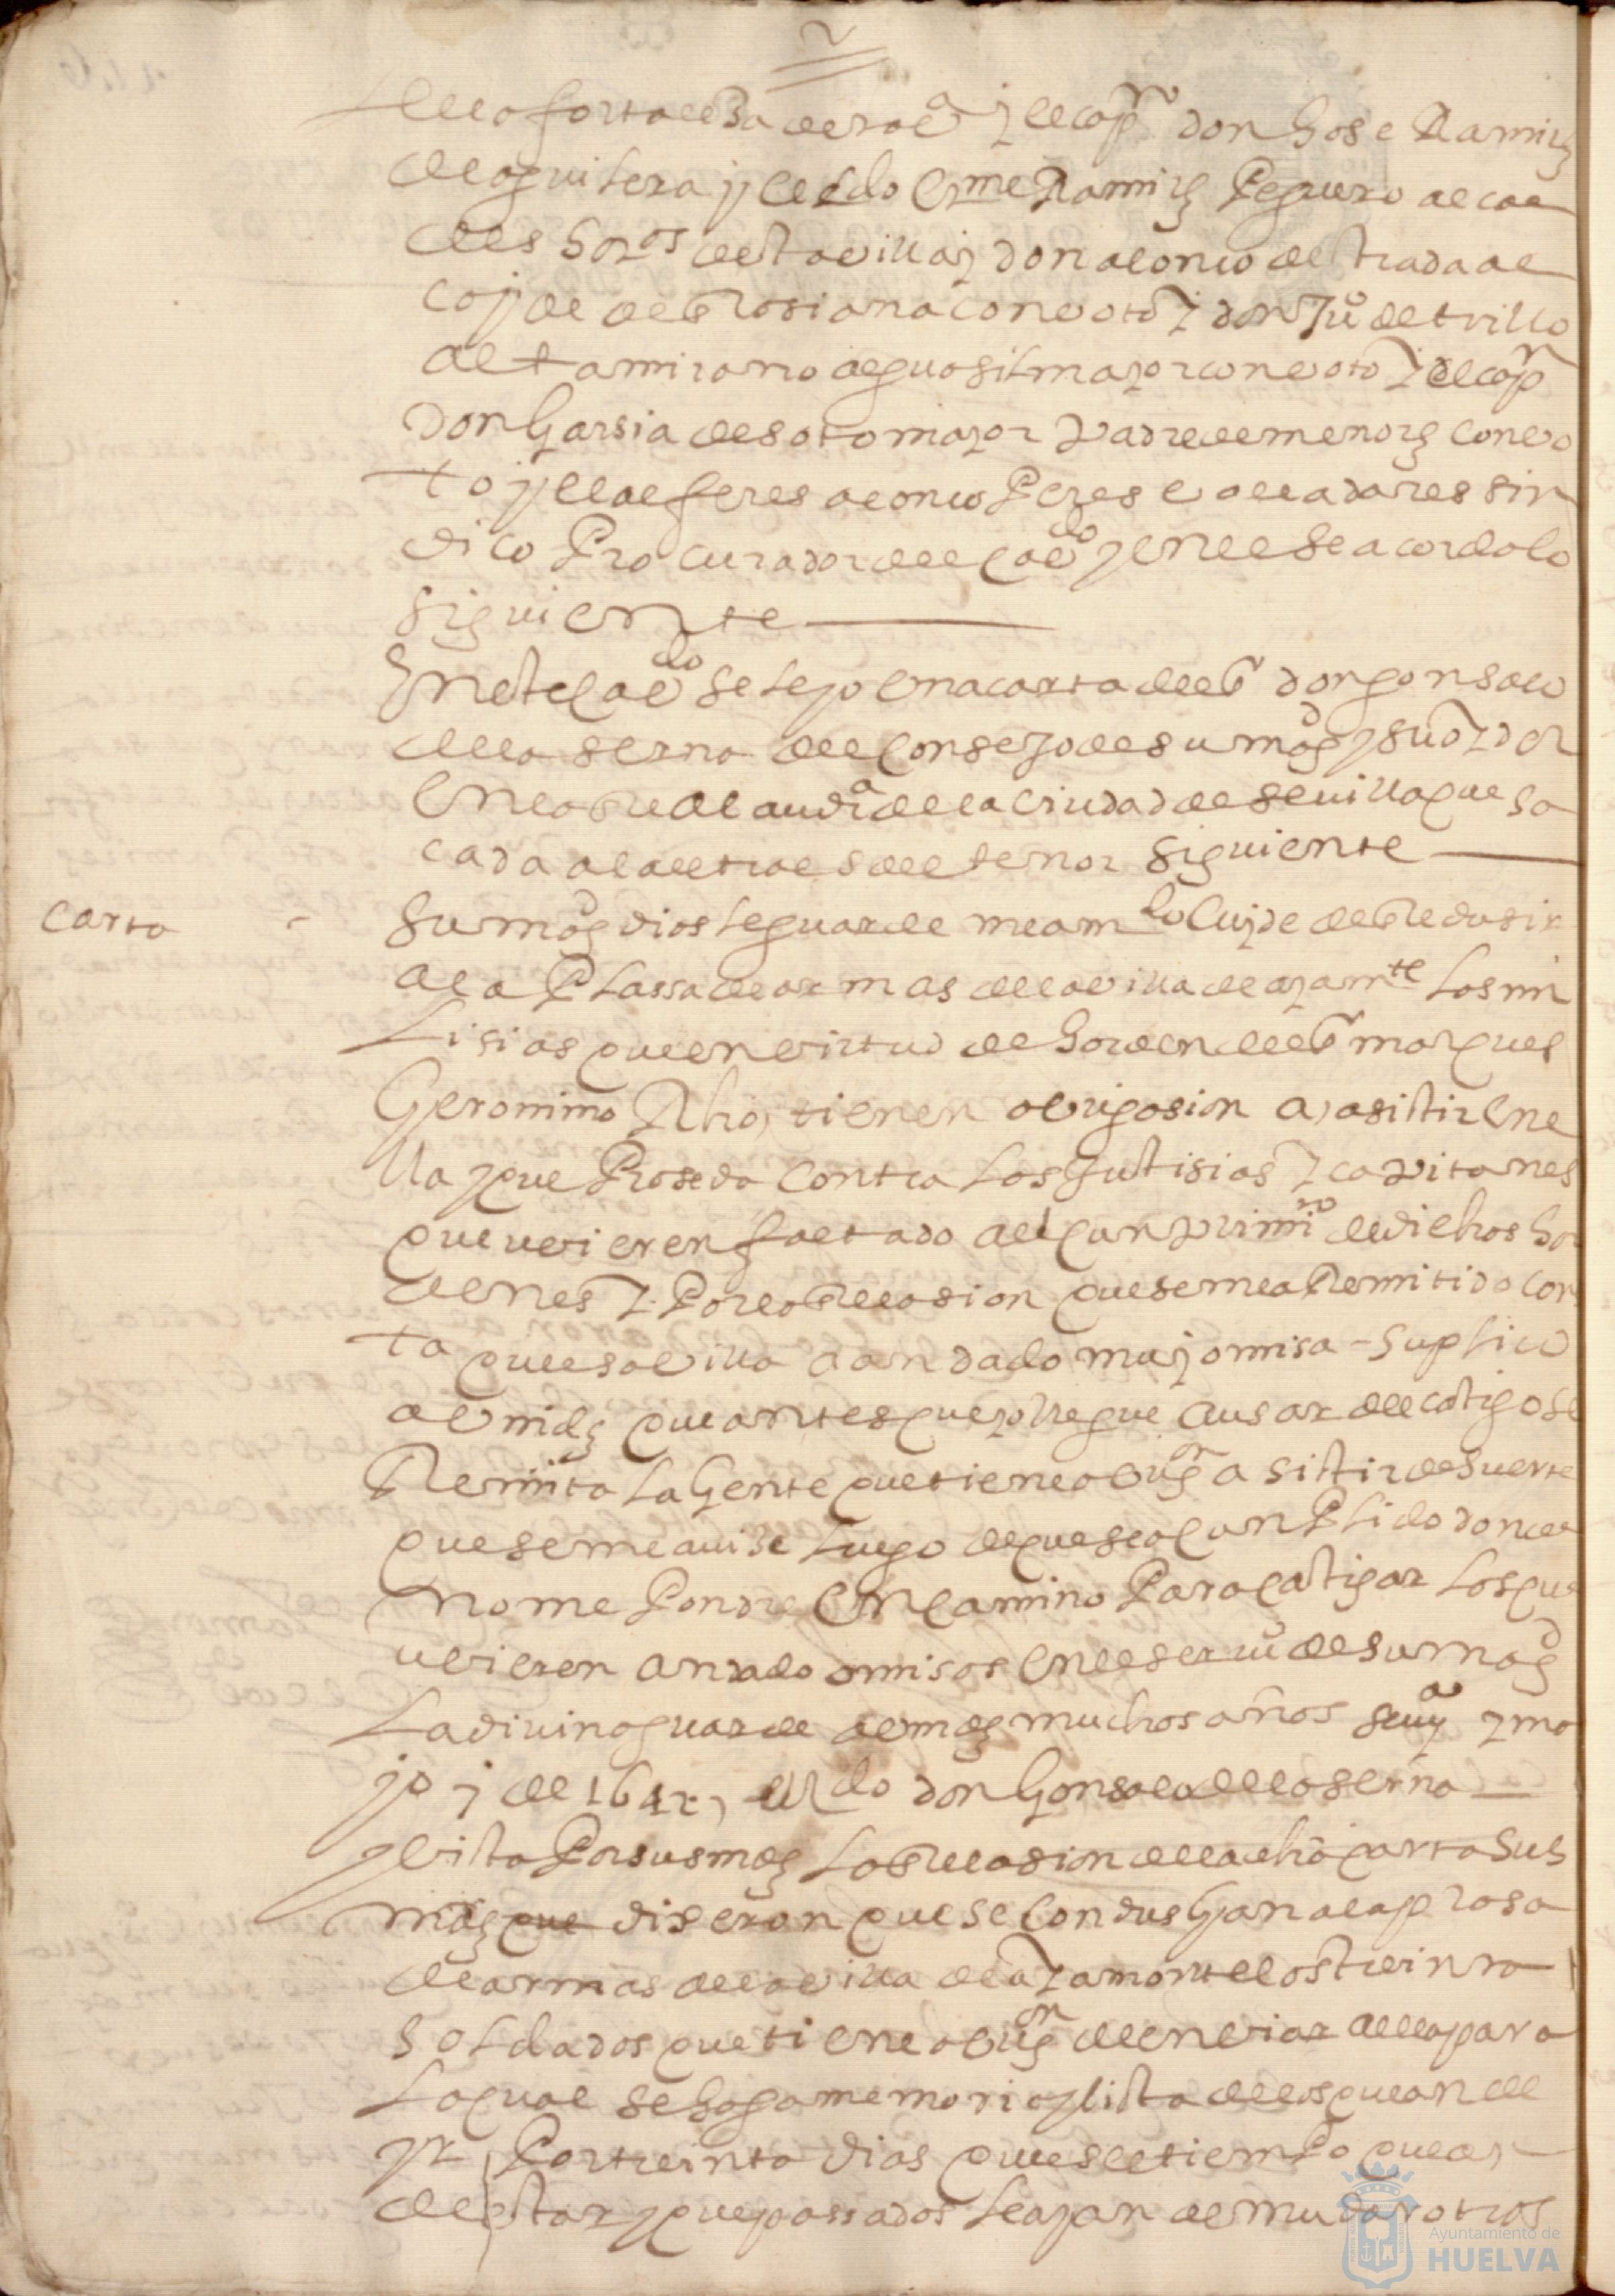 de la fortalesa de esta vᵃ y el capⁿ don Jose Ramirez
de aguilera y el Ldo Erᵐᵉ Ramirez Peguero alcal
des hordⁱᵒˢ desta villa y don alonso de estrada al
cayde de Rosiana con voto y don Juº de trillo
altamirano alguasil mayor con voto y el capⁿ
don Garsia de sotomayor Padre de menores con vo
to y el alferes alonso Peres valladares sin
dico Procurador del cavᵈᵒ y en el se acordo lo
siguiente
En este cavᵈᵒ se leyo una carta del Sʳ don gonsalo
de la serna del consejo de su magᵈ y su oydor
en la Real audiᵃ de la ciudad de sevilla que sa
cada a la letra es del tenor siguiente
Carta
Su magᵈ dios le guarde me a mᵈᵒ cuyde de Redusir
a la Plassa de armas de la villa de ayamᵗᵉ Las mi
lisias que en virtud de horden del Sʳ marques
Geronimo Rho, tienen obligasion a, asistir en e
lla y que Proseda contra Las Justisias y capitanes
que uvieren faltado al cunplimiᵗᵒ de dichas hor
denes y Por la Relasion que se me a Remitido cons
ta que esa villa a andado muy omisa - suplico
a Vmdes que antes que yo llegue a usar del castigo se
Remita La Gente que tiene obligⁿ a sistir de suerte
que se me avise Luego de que sea cunplido donde
no me Pondre en camino Para castigar Los que
uvieren andado omisos en el servⁱᵒ de su magᵈ
La divina guarde a Vmdes muchos años sevᵃ y ma
yo 7 de 1642, el Ldo don Gonsalo de la serna
y vista Por sus mdes La Relasion de la dha carta sus
mdes que dixeron que se condusgan a la plasa
de armas de la villa de ayamonte los treinta
soldados que tiene obligᵒⁿ de enviar a ella para
Lo qual se haga memoria y lista de los que an de
yr Por treinta dias que es el tiempo que an
de estar y que passados se ayan de mudar otros
Ayuntamiento de
HUELVA